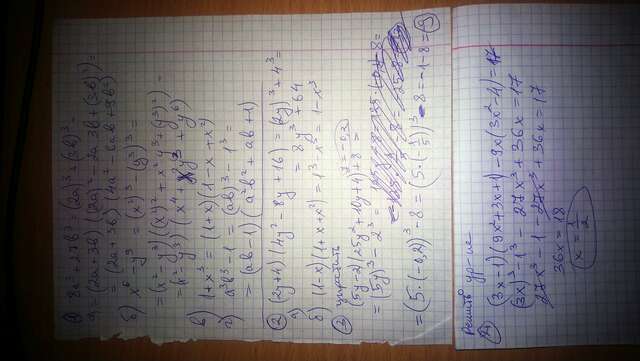 ① 8a³+27b³ = (2a)³+(3b)³=
а) = (2a+3b)((2a)²-2a·3b+(3b)²)=
= (2a+3b)(4a²-6ab+9b²)
б) x⁶-y⁹ = (x²)³-(y³)³=
= (x²-y³)((x²)²+x²y³+(y³)²)=
= (x²-y³)(x⁴+x²y³+y⁶)
в) 1+x³ = (1+x)(1-x+x²)
г) a³b³-1 = (ab)³-1³=
= (ab-1)(a²b²+ab+1)
② (2y+4)(4y²-8y+16) = (2y)³+4³=
а) = 8y³+64
б) (1-x)(1+x+x²) = 1³-x³ = 1-x³
③ упростить
(5y-2)(25y²+10y+4)-8=
= (5y)³-2³-8=
= (5·(-0,2))³-8 = (5·(-1/5))³-8 = -1-8 = -9
Решить ур-ие
④ (3x-1)(9x²+3x+1)-9x(3x²-4)=17
(3x)³-1³-27x³+36x=17
27x³-1-27x³+36x=17
36x=18
x=1/2